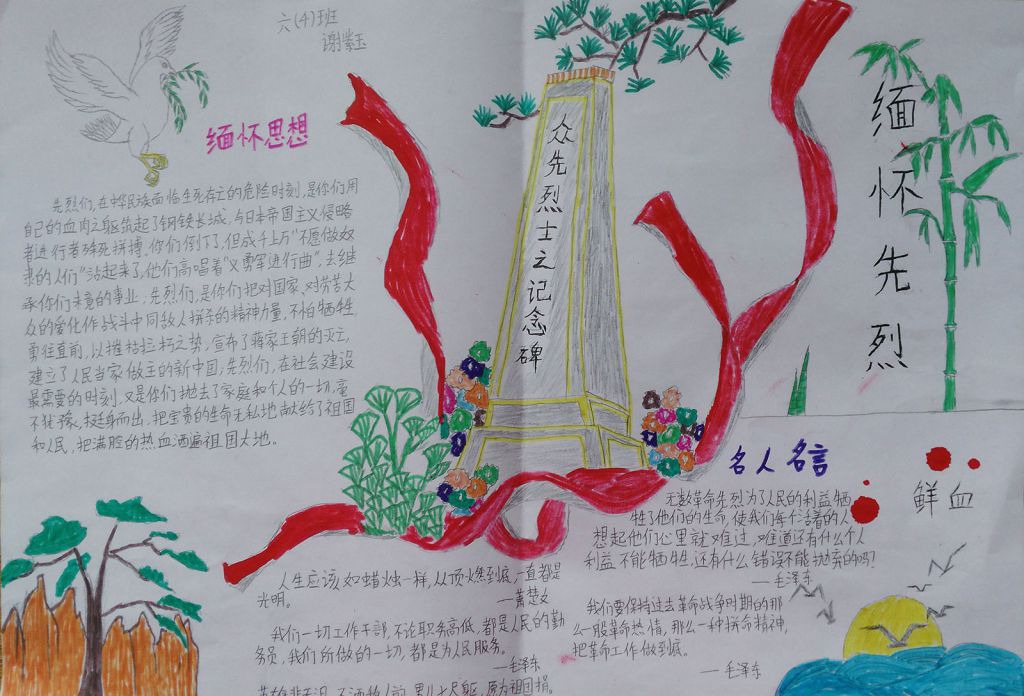 六(4)班
谢紫玉
缅怀思想
先烈们,在中华民族面临生死存亡的危险时刻,是你们用
自己的血肉之躯筑起了钢铁长城,与日本帝国主义侵略
者进行者殊死拼搏。你们倒下了,但成千上万"不愿做奴
隶的人们"站起来了,他们高唱着"义勇军进行曲",去继
承你们未竟的事业,先烈们,是你们把对国家、对劳苦大
众的爱化作战斗中同敌人拼杀的精神力量,不怕牺牲,
勇往直前,以摧枯拉朽之势,宣布了蒋家王朝的灭亡,
建立了人民当家做主的新中国,先烈们,在社会建设
最需要的时刻,又是你们抛去了家庭和个人的一切,毫
不犹豫,挺身而出,把宝贵的生命无私地献给了祖国
和人民,把满腔的热血洒遍祖国大地。
众先烈士之记念碑
缅怀先烈
名人名言
鲜血
无数革命先烈为了人民的利益牺
牲了他们的生命,使我们每个活着的人
想起他们心里就难过,难道还有什么个人
利益不能牺牲,还有什么错误不能抛弃的吗?
—毛泽东
我们要保持过去革命战争时期的那
么一股革命热情,那么一种拼命精神,
把革命工作做到底。
—毛泽东
人生应该如蜡烛一样,从顶燃到底,一直都是
光明。
—萧楚女
我们一切工作干部,不论职务高低,都是人民的勤
务员,我们所做的一切,都是为人民服务。
—毛泽东